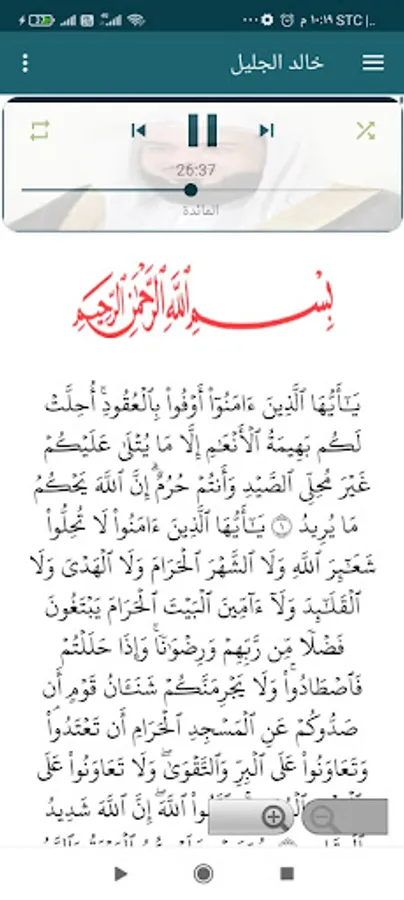 ١٠:١٩ م STC |..
خالد الجليل
26:37
المائدة
بِسْمِ ٱللَّهِ ٱلرَّحْمَٰنِ ٱلرَّحِيمِ
يَٰٓأَيُّهَا ٱلَّذِينَ ءَامَنُوٓا۟ أَوْفُوا۟ بِٱلْعُقُودِۚ أُحِلَّتْ
لَكُم بَهِيمَةُ ٱلْأَنْعَٰمِ إِلَّا مَا يُتْلَىٰ عَلَيْكُمْ
غَيْرَ مُحِلِّى ٱلصَّيْدِ وَأَنتُمْ حُرُمٌۗ إِنَّ ٱللَّهَ يَحْكُمُ
مَا يُرِيدُ ١ يَٰٓأَيُّهَا ٱلَّذِينَ ءَامَنُوا۟ لَا تُحِلُّوا۟
شَعَٰٓئِرَ ٱللَّهِ وَلَا ٱلشَّهْرَ ٱلْحَرَامَ وَلَا ٱلْهَدْىَ وَلَا
ٱلْقَلَٰٓئِدَ وَلَآ ءَآمِّينَ ٱلْبَيْتَ ٱلْحَرَامَ يَبْتَغُونَ
فَضْلًا مِّن رَّبِّهِمْ وَرِضْوَٰنًاۚ وَإِذَا حَلَلْتُمْ
فَٱصْطَادُوا۟ۚ وَلَا يَجْرِمَنَّكُمْ شَنَـَٔانُ قَوْمٍ أَن
صَدُّوكُمْ عَنِ ٱلْمَسْجِدِ ٱلْحَرَامِ أَن تَعْتَدُوا۟ۘ
وَتَعَاوَنُوا۟ عَلَى ٱلْبِرِّ وَٱلتَّقْوَىٰۖ وَلَا تَعَاوَنُوا۟ عَلَى
ٱللَّهَۖ إِنَّ ٱللَّهَ شَدِيدُ